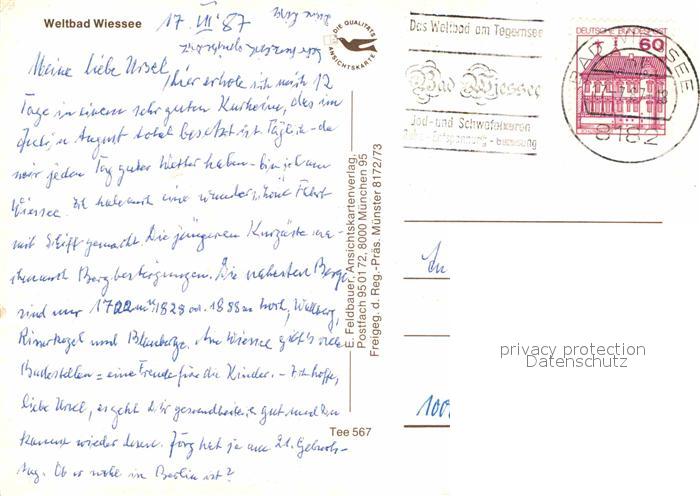 Weltbad Wiessee
17. VII. 87
DIE QUALITÄTS
ANSICHTSKARTE
Meine liebe Ursel,
hier erhole ich mich 12
Tage in einem sehr guten Kurheim, das im
August total besetzt ist. Täglich - da
wir jeden Tag gutes Wetter haben - bin ich am
Wiessee. Ich habe auch eine wunderschöne Fahrt
mit Schiff gemacht. Die jüngeren Kurgäste
auch Bergbesteigungen. Die nahesten Berge
sind nur 1722 m, 1828 od. 1888 m hoch, Wallberg,
und Blauberge. Am Wiessee gibt's viele
Badestellen = eine Freude für die Kinder. - Ich hoffe,
liebe Ursel, es geht Dir gesundheitlich gut und Du
kannst wieder lesen. Jörg hat ja am 21. Geburts-
tag. Ob er wohl in Berlin ist?
E. Feldbauer, Ansichtskartenverlag,
Postfach 95 01 72, 8000 München 95
Freigeg. d. Reg.-Präs. Münster 8172/73
Tee 567
Das Weltbad am Tegernsee
Bad Wiessee
Jod- und Schwefelkuren
DEUTSCHE BUNDESPOST
60
BAD WIESSEE
8182
An
100
privacy protection
Datenschutz